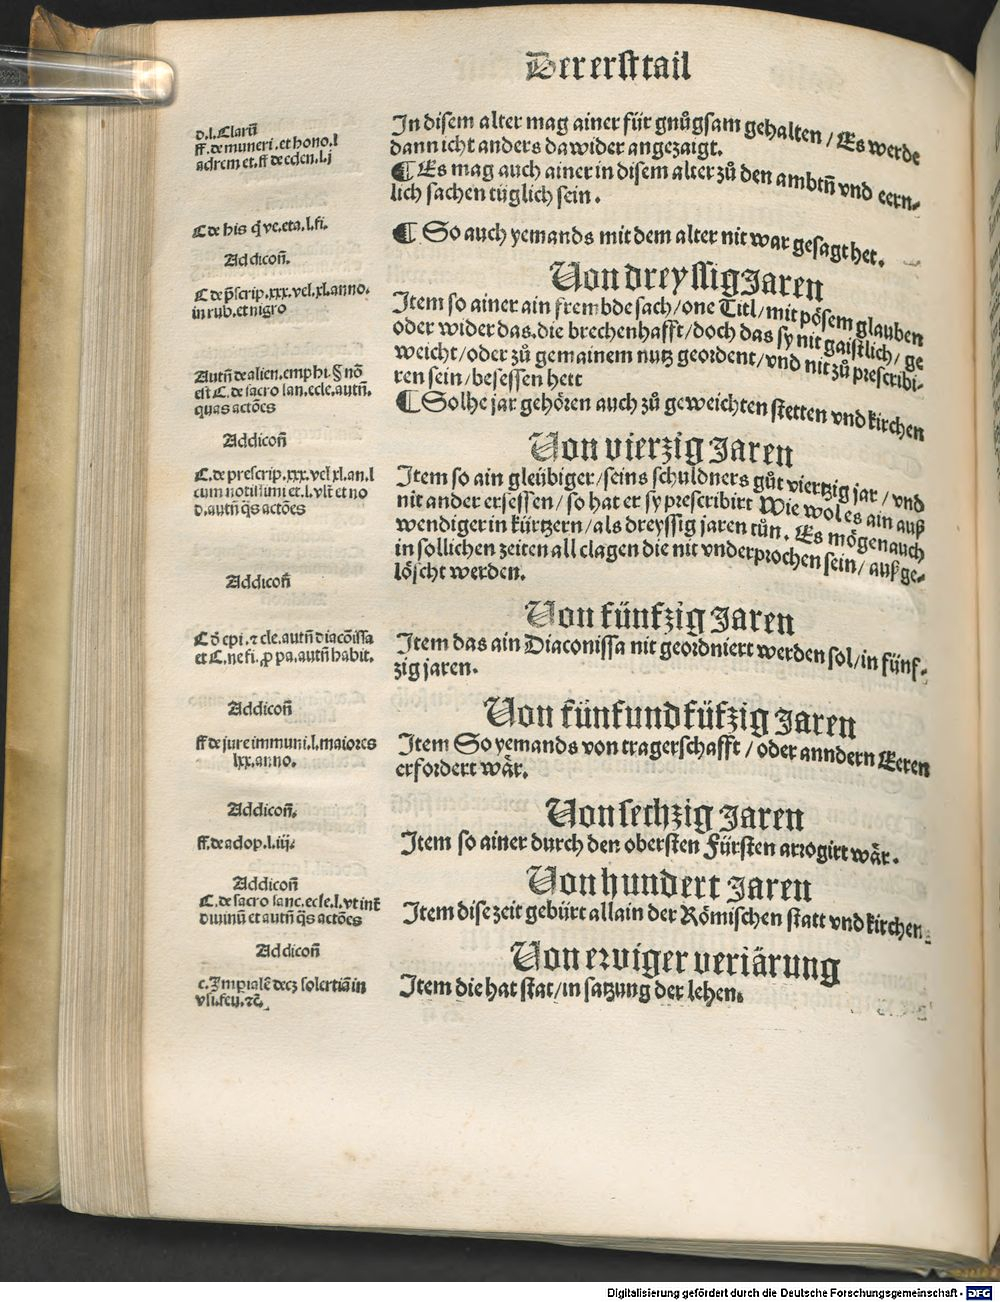 Der erst tail
d.l.Clarū
ff.de muneri.et hono.l
ad rem et.ff de eden.l.j
In disem alter mag ainer für gnůgsam gehalten / Es werde
dann icht anders dawider angezaigt.
¶ Es mag auch ainer in disem alter zů den ambtn̄ vnd eern⸗
lich sachen tüglich sein.
C de his q̇ ve.eta.l.fi.
¶ So auch yemands mit dem alter nit war gesagt het.
Addicon̄.
Von dreyssig Jaren
C de p̄scrip.xxx.vel.xl.anno.
in rub.et nigro
Item so ainer ain frembde sach/one Titl/mit pösem glauben
oder wider das.die brechenhafft/doch das sy nit gaistlich/ ge
weicht/oder zů gemainem nutz geordent/vnd nit zů prescribi⸗
ren sein/besessen hett
Autn̄ de alien.emphi.§ nō
est C.de sacro san.ecle.autn̄.
quas actōes
¶ Solhe jar gehören auch zů geweichten stetten vnd kirchen
Addicon̄
Von vierzig Jaren
C.de prescrip.xxx.vel xl.an.l
cum notissimi et.l.vlt̄ et no
d.autn̄ q̄s actōes
Item so ain gleübiger/seins schuldners gůt viertzig jar / vnd
nit ander ersessen/so hat er sy prescribirt Wie wol es ain auß
wendiger in kürtzern/als dreyssig jaren tůn. Es mögen auch
in sollichen zeiten all clagen die nit vnderprochen sein/ auß ge⸗
löscht werden.
Addicon̄
Von fünfzig Jaren
C ō epi.⁊ cle.autn̄ diacōissa
et C.ne fi. ꝓ pa.autn̄ habit.
Item das ain Diaconissa nit geordniert werden sol/in fünf⸗
zig jaren.
Addicon̄
Von fünfundfüfzig Jaren
ff de jure immuni.l.maiores
lxx.anno.
Item So yemands von tragerschafft / oder anndern Eeren
erfordert wår.
Addicon̄.
Von sechzig Jaren
ff.de adop.l.iij.
Item so ainer durch den obersten Fürsten arrogirt wår.
Addicon̄
Von hundert Jaren
C.de sacro sanc.ecle.l.vt int̄
diuinū et autn̄ q̄s actōes
Item dise zeit gebürt allain der Römischen statt vnd kirchen.
Addicon̄
Von ewiger veriärung
c.Imp̄ialē decꝫ solertiā in
vsi.feu.⁊c̄.
Item die hat stat/in satzung der lehen.
Digitalisierung gefördert durch die Deutsche Forschungsgemeinschaft - DFG